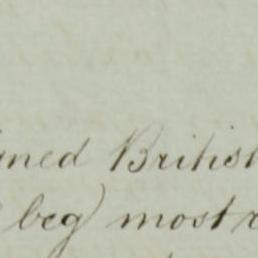 ined British
beg) most r